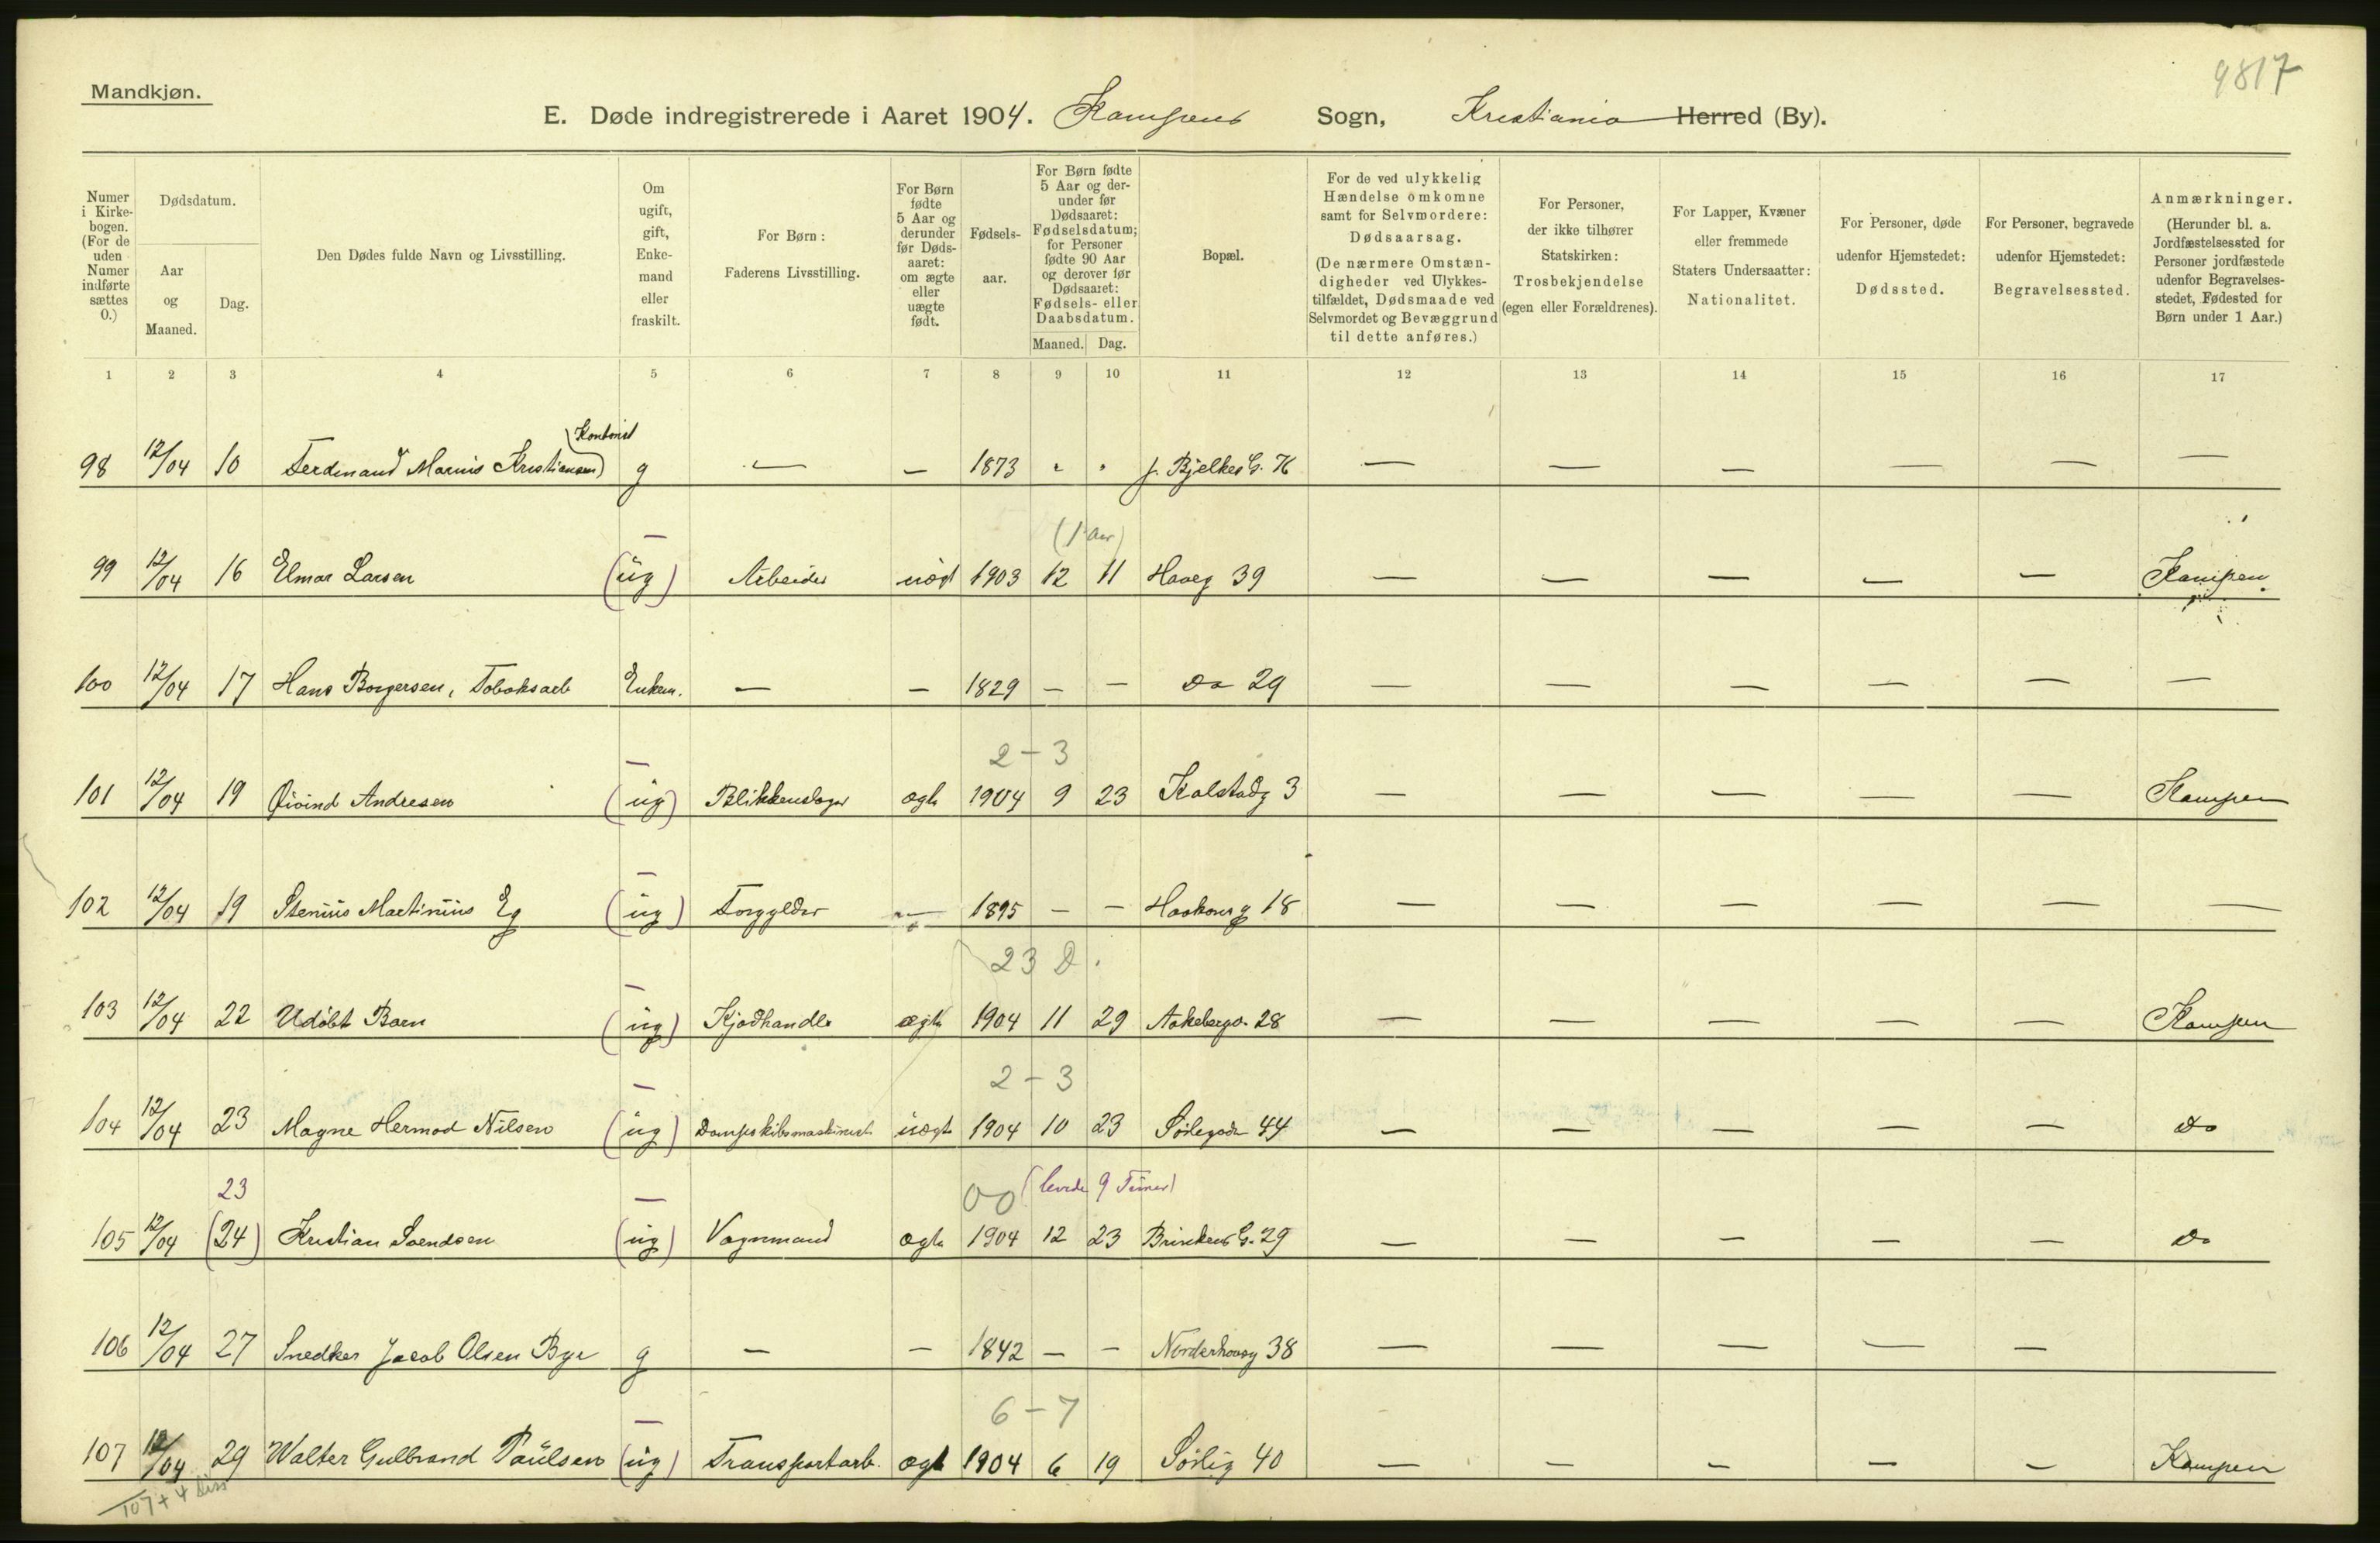 9817
Mandkjøn.
E. Døde indregistrerede i Aaret 1904. Kampens Sogn, Kristiania Herred (By).
Numer i Kirkebogen. (For de uden Numer indførte sættes 0.)
Dødsdatum.
Aar og Maaned.
Dag.
Den Dødes fulde Navn og Livsstilling.
Om ugift, gift, Enkemand eller fraskilt.
For Børn: Faderens Livsstilling.
For Børn fødte 5 Aar og derunder før Dødsaaret: om ægte eller uægte født.
Fødselsaar.
For Børn fødte 5 Aar og derunder før Dødsaaret: Fødselsdatum; for Personer fødte 90 Aar og derover før Dødsaaret: Fødsels- eller Daabsdatum.
Maaned. Dag.
Bopæl.
For de ved ulykkelig Hændelse omkomne samt for Selvmordere: Dødsaarsag. (De nærmere Omstændigheder ved Ulykkestilfældet, Dødsmaade ved Selvmordet og Bevæggrund til dette anføres.)
For Personer, der ikke tilhører Statskirken: Trosbekjendelse (egen eller Forældrenes).
For Lapper, Kvæner eller fremmede Staters Undersaatter: Nationalitet.
For Personer, døde udenfor Hjemstedet: Dødssted.
For Personer, begravede udenfor Hjemstedet: Begravelsessted.
Anmærkninger. (Herunder bl. a. Jordfæstelsessted for Personer jordfæstede udenfor Begravelsesstedet, Fødested for Børn under 1 Aar.)
1 2 3 4 5 6 7 8 9 10 11 12 13 14 15 16 17
Kontorist
98 12/04 10 Ferdinand Marius Kristiansen) g — — 1873 " " J. Bjelkes G. — — — — — —
(1 Aar)
99 12/04 16 Elmar Larsen (ug) Arbeider uægt 1903 12 11 Haveg 39 — — — — — Kampen
100 12/04 17 Hans Borgersen, Tobaksarb Enkem. — — 1829 — — Do 29 — — — — — —
2 - 3
101 12/04 19 Øivind Andresen (ug) Blikkenslager ægte 1904 9 23 Kalstadg 3 — — — — — Kampen
102 12/04 19 Stenius Martinius Eg (ug) Forgylder — 1895 — — Haakonsg 18 — — — — — —
23 D.
103 12/04 22 Udøbt Barn (ug) Kjødhandler ægte 1904 11 29 Aakebergv. 28 — — — — — Kampen
2 - 3
104 12/04 23 Magne Hermod Nilsen (ug) Dampskibsmaskinist uægt 1904 10 23 Sørligade 44 — — — — — Do
23 00 (levede 9 Timer)
105 12/04 (24) Kristian Svendsen (ug) Vognmand ægte 1904 12 23 Brinkens G. 29 — — — — — Do
106 12/04 27 Snedker Jacob Olsen Bye g — — 1842 — — Norderhovsg 38 — — — — —
6 - 7
107 12/04 29 Walter Gulbrand Paulsen (ug) Transportarb. ægt 1904 6 19 Sørlig 40 — — — — — Kampen
107 + 4 Diss